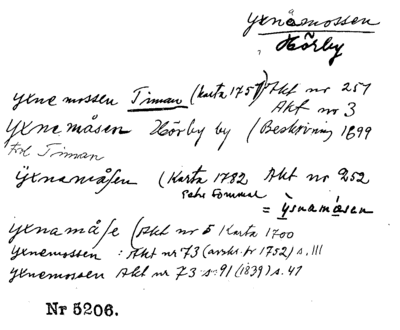 yxnåsmossen
Hörby
yxnemossen Timan (Karta 1757) Akt nr 251
Akt nr 3
yxnemåsen Hörby by (Beskrivning 1699
Timan
Ÿxnamåßen (Karta 1782 Akt nr 252
= ỳsnamåsen
yxnamåße (Akt nr 5 Karta 1700
yxnemossen : Akt nr 73 (avskr. fr 1752) s. 111
yxnemossen Akt nr 73 s. 91 (1839) s. 47
Nr 5206.